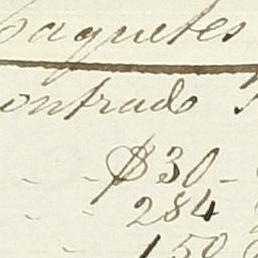 paquetes
ontrado
- - $30 -
- - 284
- 150